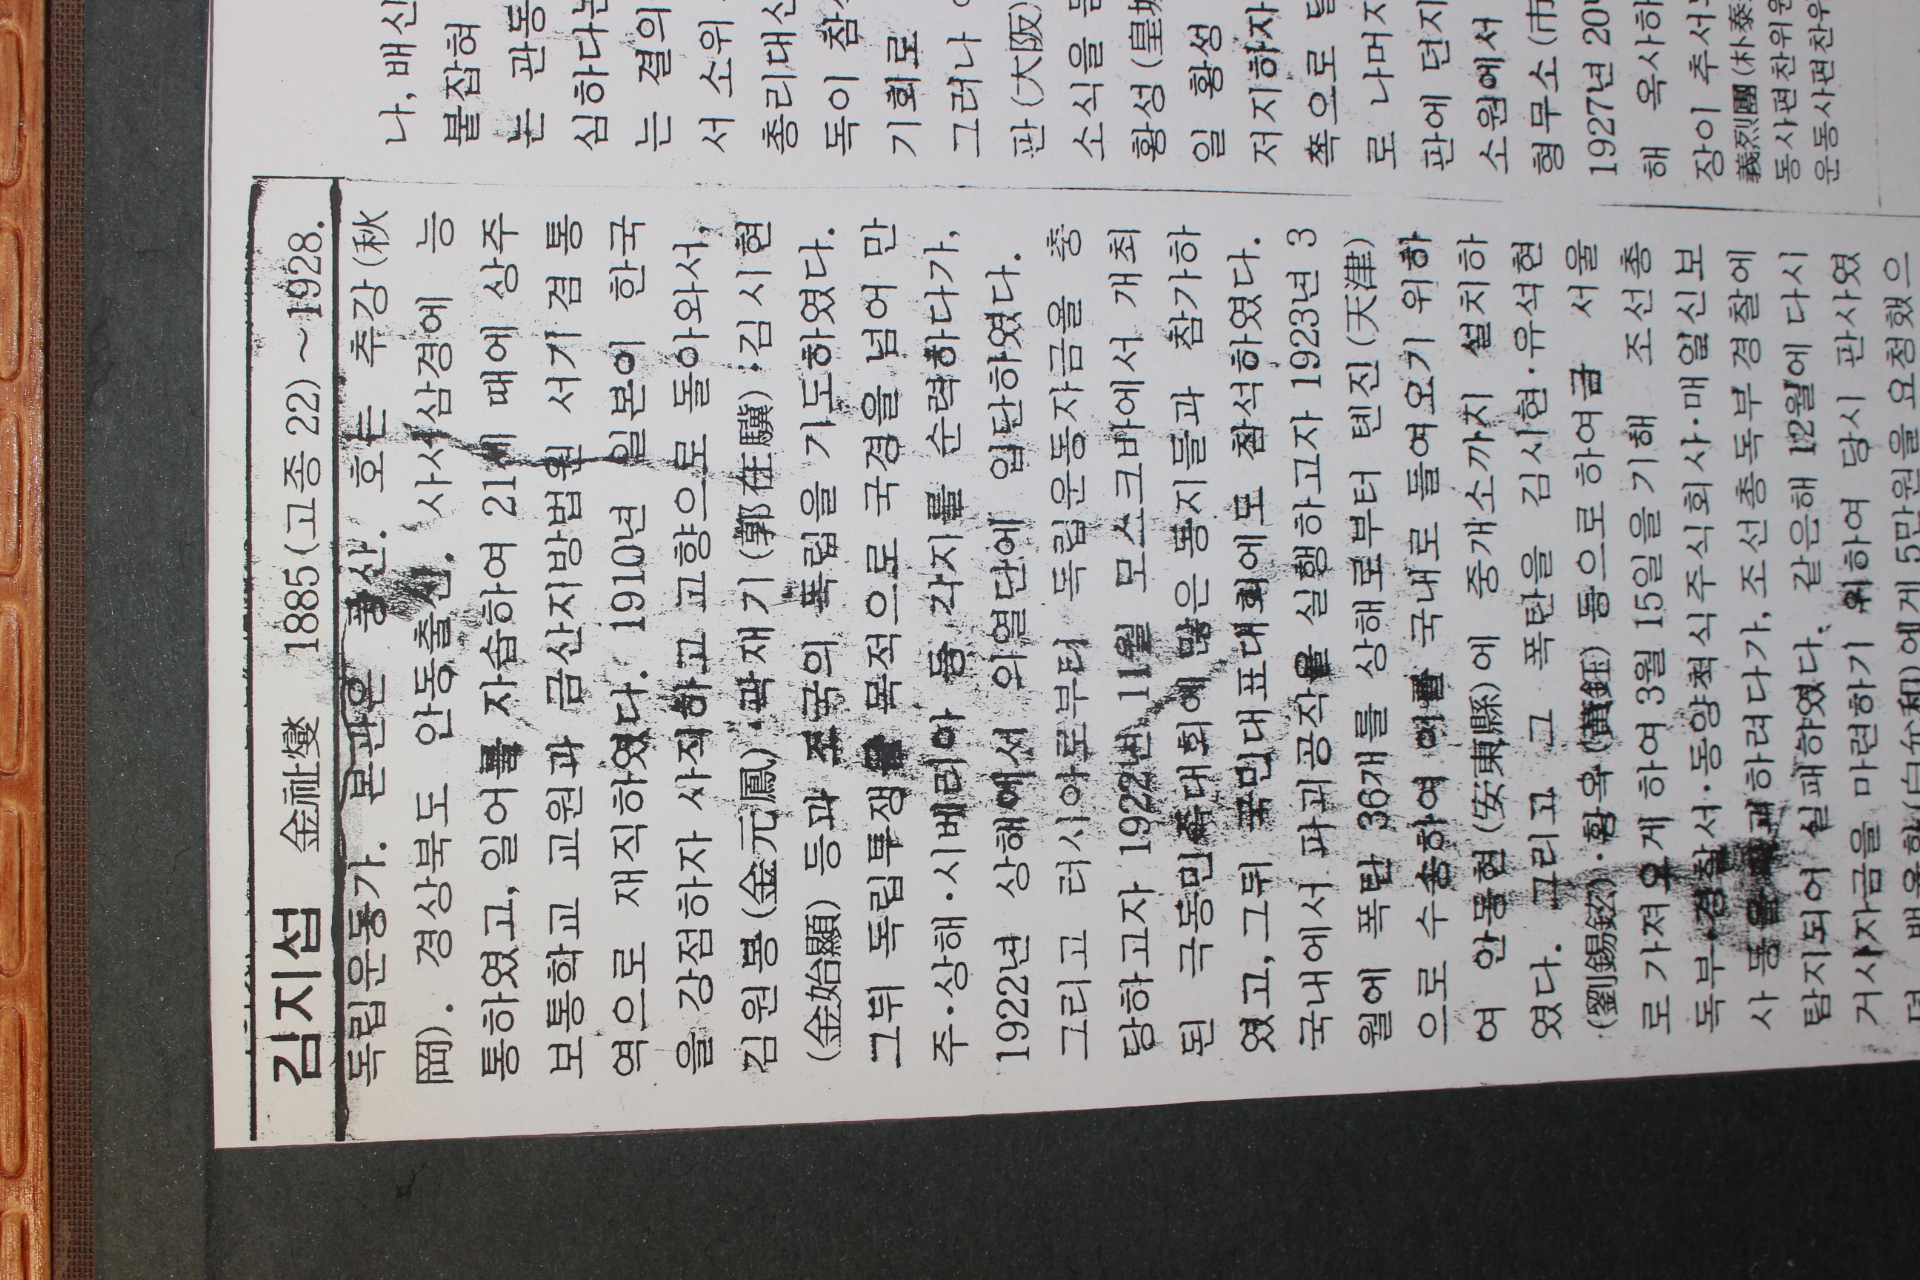 김지섭 金祉燮 1885(고종 22)~1928.
독립운동가. 본관은 풍산. 호는 추강(秋
岡). 경상북도 안동출신. 사서삼경에 능
통하였고, 일어를 자습하여 21세 때에 상주
보통학교 교원과 금산지방법원 서기 겸 통
역으로 재직하였다. 1910년 일본이 한국
을 강점하자 사직하고 고향으로 돌아와서,
김원봉(金元鳳)·곽재기(郭在驥)·김시현
(金始顯) 등과 조국의 독립을 기도하였다.
그뒤 독립투쟁을 목적으로 국경을 넘어 만
주·상해·시베리아 등 각지를 순력하다가,
1922년 상해에서 의열단에 입단하였다.
그리고 러시아로부터 독립운동자금을 충
당하고자 1922년 11월 모스크바에서 개최
된 극동민족대회에 많은 동지들과 참가하
였고, 그뒤 국민대표대회에도 참석하였다.
국내에서 파괴공작을 실행하고자 1923년 3
월에 폭탄 36개를 상해로부터 텐진(天津)
으로 수송하여 이를 국내로 들여오기 위하
여 안동현(安東縣)에 중개소까지 설치하
였다. 그리고 그 폭탄을 김시현·유석현
(劉錫鉉)·황옥(黃鈺) 등으로 하여금 서울
로 가져오게 하여 3월 15일을 기해 조선총
독부·경찰서·동양척식주식회사·매일신보
사 등을 파괴하려다가, 조선총독부 경찰에
탐지되어 실패하였다. 같은해 12월에 다시
거사자금을 마련하기 위하여 당시 판사였
던 백윤화(白允和)에게 5만원을 요청했으
나, 배신
붙잡혀
는 관동
심하다는
는 결의
서 소위
총리대신
독이 참
기회로
그러나
판(大阪)
소식을
황성(皇城
일 황성
저지하자
쪽으로
로 나머지
판에 던지
소원에서
형무소(市
1927년 20
해 옥사하
장이 추서
義烈團(朴泰
동사편찬위원
운동사편찬위